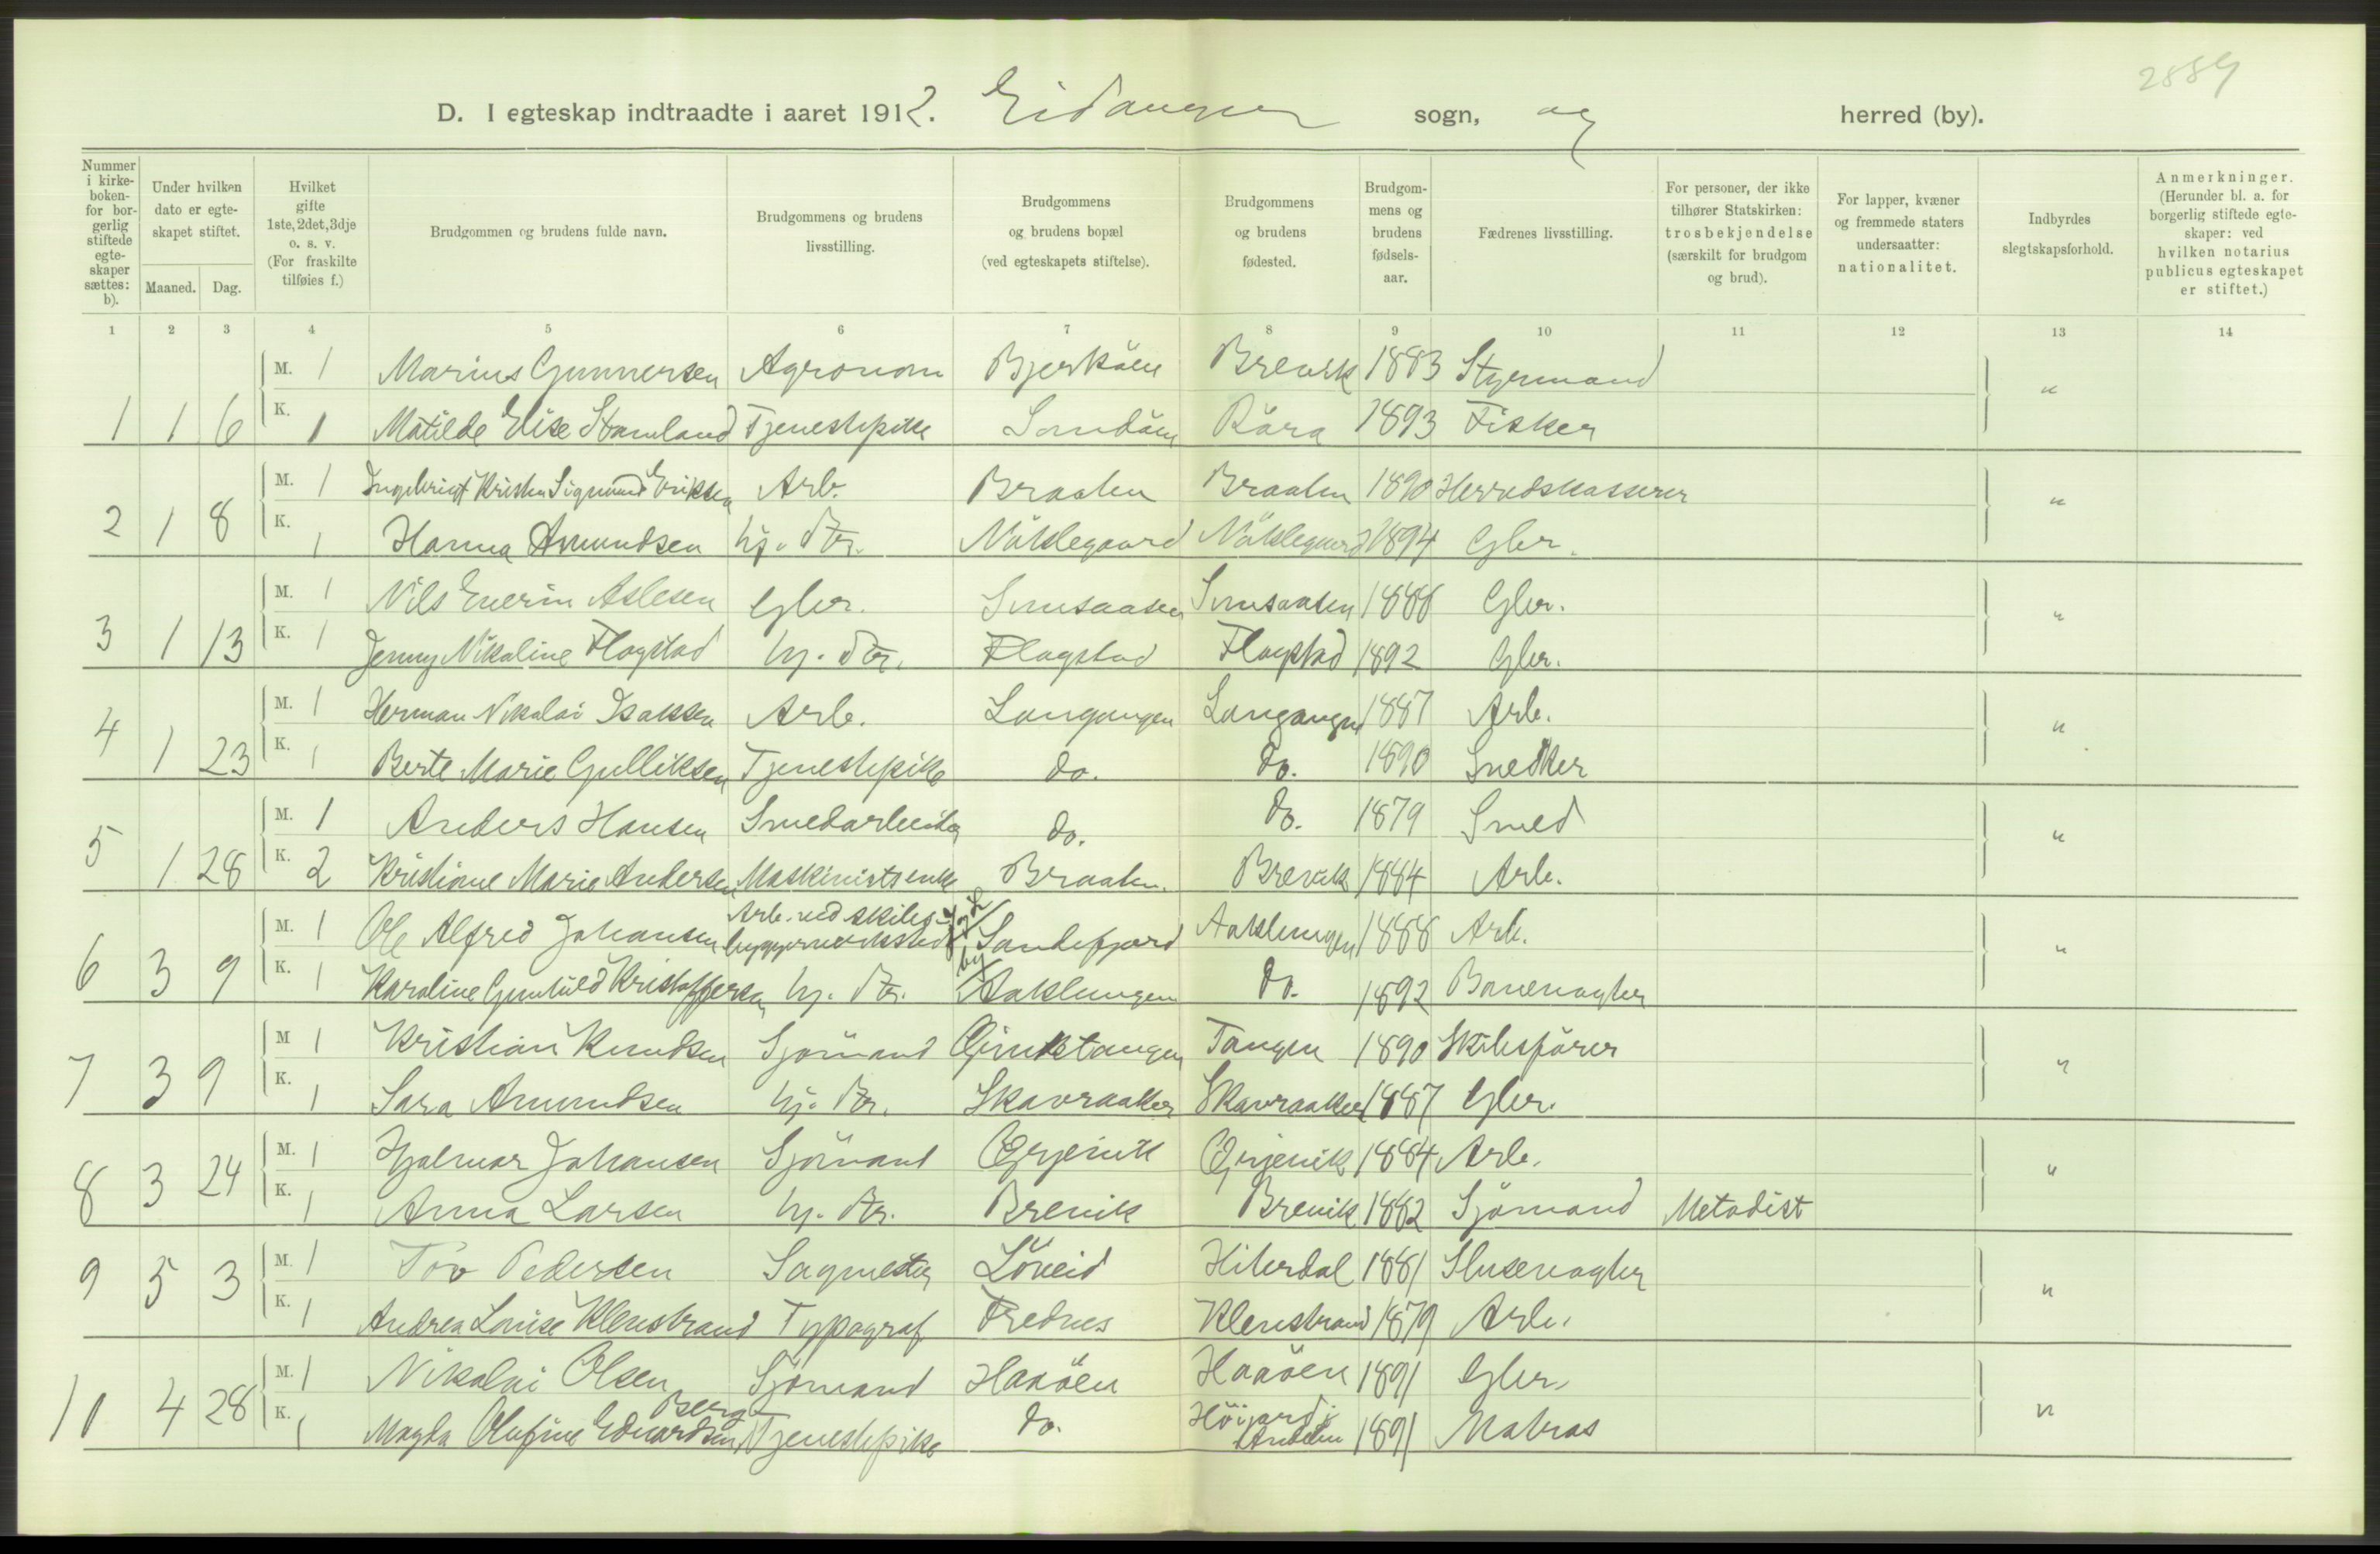 2889
D. I egteskap indtraadte i aaret 1912. Eidanger sogn, og herred (by).
Nummer i kirkeboken- for borgerlig stiftede egteskaper sættes: b).
Under hvilken dato er egteskapet stiftet.
Maaned. Dag.
Hvilket gifte 1ste, 2det, 3dje o. s. v. (For fraskilte tilføies f.)
Brudgommen og brudens fulde navn.
Brudgommens og brudens livsstilling.
Brudgommens og brudens bopæl (ved egteskapets stiftelse).
Brudgommens og brudens fødested.
Brudgommens og brudens fødselsaar.
Fædrenes livsstilling.
For personer, der ikke tilhører Statskirken: trosbekjendelse (særskilt for brudgom og brud).
For lapper, kvæner og fremmede staters undersaatter: nationalitet.
Indbyrdes slegtskapsforhold.
Anmerkninger. (Herunder bl. a. for borgerlig stiftede egteskaper: ved hvilken notarius publicus egteskapet er stiftet.)
1 2 3 4 5 6 7 8 9 10 11 12 13 14
M. 1 Marius Gunnersen Agronom Bjerköen Brevik 1883 Styrmand "
1 1 6 K. 1 Matilde Elise Stamland Tjenestepike Sandöen Röra 1893 Fisker
M. 1 Ingebrigt Kristen Sigmund Eriksen Arb. Braaten Braaten 1890 Herredskasserer "
2 1 8 K. 1 Hanna Amundsen hj. dtr. Nöklegaard Nöklegaard 1894 Gbr.
M. 1 Nils Enerin Aslesen Gbr. Simsaasen Simsaasen 1888 Gbr. "
3 1 13 K. 1 Jenny Nikoline Flogstad hj. dtr. Flogstad Flogstad 1892 Gbr.
M. 1 Herman Nikolai Isaksen Arb. Langangen Langangen 1887 Arb. "
4 1 23 K. 1 Berte Marie Gulliksen Tjenestepike do. do. 1890 Snedker
M. 1 Anders Hansen Smedarbeider do. do. 1879 Smed "
5 1 28 K. 2 Kristiane Marie Andersen Maskinistenke Braaten. Brevik 1884 Arb.
M. 1 Ole Alfred Johansen Arb. ved skibsbyggerverksted Sandefjord Aaklungen 1888 Arb. "
6 3 9 K. 1 Karoline Gunhild Kristoffersen hj. dtr. by Aaklungen do. 1892 Banevogter
M 1 Kristian Knudsen Sjömand Örviktangen Tangen 1890 Skibsförer "
7 3 9 K. 1 Sara Amundsen hj. dtr. Skavraaker Skavraaker 1887 Gbr.
M. 1 Hjalmar Johansen Sjömand 1884 Arb. "
8 3 24 K. 1 Anna Larsen hj. dtr. Brevik Brevik 1882 Sjömand Metodist
M. 1 Tov Pedersen Sagmester Löveid Hiterdal 1881 Slusevogter "
9 5 3 K. 1 Andrea Louise Klenstrand Typograf Frednes Klenstrand 1879 Arb.
M. 1 Nikolai Olsen Sjömand Haaöen Haaöen 1891 Gbr. "
Berg
10 4 28 K. 1 Magda Olufine Edvardsen Tjenestepike do. 1891 Matros